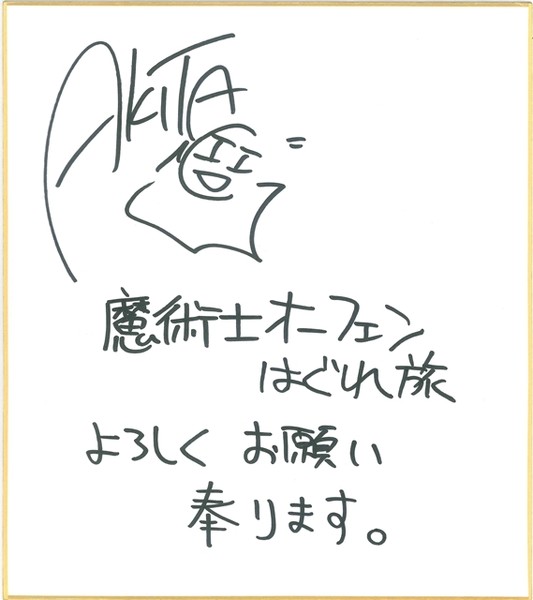 AKITA
魔術士オーフェン
はぐれ旅
よろしく お願い
奉ります。